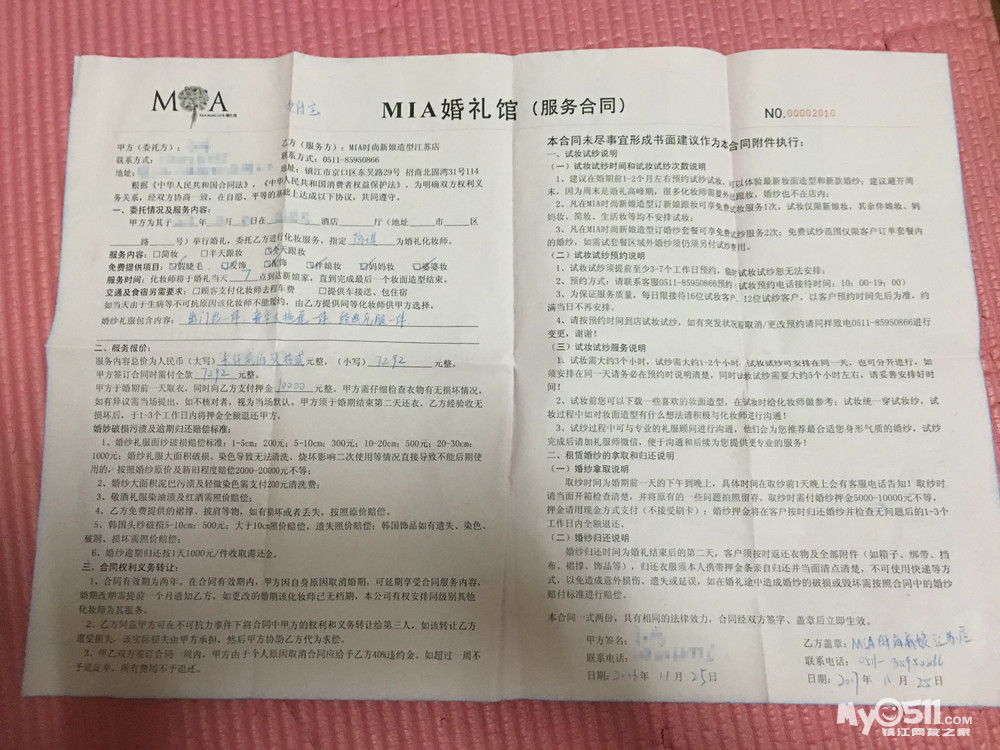 MIA
MIA婚礼馆（服务合同）
NO.00002016
甲方（委托方）：
联系方式：
地址：
乙方（服务方）：MIA时尚新娘造型江苏店
联系方式：0511-85950866
地址：镇江市京口区东吴路29号 招商北固湾31号114
根据《中华人民共和国合同法》，《中华人民共和国消费者权益保护法》，为明确双方权利义
务关系，经双方协商一致，在自愿、平等的基础上达成以下协议，共同遵守。
一、委托情况及服务内容：
甲方为其于 年 月 日在 酒店 厅（地址 市 区
路 号）举行婚礼，委托乙方进行化妆服务，指定 为婚礼化妆师。
服务内容：□简妆 □半天跟妆 全天跟妆
免费提供项目：假睫毛、 发饰 配饰 伴娘妆 妈妈妆 婆婆妆
服务时间：化妆师将于婚礼当天 7 点到达新娘家，直到完成最后一个妆面造型结束。
交通及食宿另需要求：□顾客支付化妆师去程车费 □提供车接送、包住宿
如当天由于生病等不可抗原因该化妆师不能履约，由乙方提供同等化妆师供甲方选择。
婚纱礼服包含内容：出门纱一件、
二、服务报价：
服务内容总价为人民币（大写） 元整，（小写）7292 元整。
甲方签订合同时需付全款 7292 元整。
甲方于婚期前一天取衣，同时向乙方支付押金 10000 元整。甲方需仔细检查衣物有无损坏情况，
如有异议需当场提出，如不核对者，视为当场默认。甲方须于婚期结束第二天还衣，乙方经验收无
损坏后，于1-3个工作日内将押金全额退还甲方。
婚纱破损污渍及逾期归还赔偿标准：
1、婚纱礼服面纱破损赔偿标准：1-5cm：200元；5-10cm：300元；10-20cm：500元；20-30cm：
1000元；婚纱礼服大面积破损、染色导致无法清洗、烧坏影响二次使用等情况直接导致不能后期使
用的，按照婚纱原价及新旧程度赔偿2000-20000元不等；
2、婚纱大面积泥巴污渍及轻微染色需支付200元清洗费；
3、敬酒礼服染油渍及红酒需照价赔偿；
4、乙方免费提供的裙撑、披肩等物，如有损坏或者丢失，按照原价赔偿。
5、韩国头纱破损5-10cm：500元；大于10cm照价赔偿，遗失照价赔偿；韩国饰品如有遗失、染色、
破洞、损坏需照价赔偿；
6、婚纱逾期归还按1天1000元/件收取滞还金。
三、合同权利义务转让：
1、合同有效期为两年。在合同有效期内，甲方因自身原因取消婚期，可延期享受合同服务内容，
婚期改期需提前一个月通知乙方，如更改的婚期该化妆师已无档期，本公司有权安排同级别其他
化妆师为其服务。
2、乙方同意甲方可在不可抗力事件下将合同中甲方的权利和义务转让给第三人，如该转让乙方
遭受损失，该实际损失由甲方承担，然后甲方协助乙方代为求偿。
3、甲乙双方签订合同一周内，甲方由于个人原因取消合同应给予乙方40%违约金。如超过一周不
予退定单，所有费用不予退还。
本合同未尽事宜形成书面建议作为本合同附件执行：
一、试妆试纱说明
（一）试妆试纱时间和试妆试纱次数说明
1、建议在婚期前1-2个月左右预约试妆试纱，可以体验最新妆面造型和新款婚纱；建议避开周
末，因为周末是婚礼高峰期，很多化妆师需要外出跟妆，婚纱也不在店内；
2、凡在MIA时尚新娘造型订新娘跟妆可享免费试妆服务1次，试妆仅限新娘妆，其余伴娘妆、妈
妈妆、简妆、生活妆等均不安排试妆；
3、凡在MIA时尚新娘造型订婚纱套餐可享免费试纱服务2次；免费试纱范围仅限客户订单套餐内
的婚纱，如需试套餐区域外婚纱须仍须另付试纱费用。
（二）试妆试纱预约说明
1、试妆试纱须提前至少3-7个工作日预约，临时试妆试纱恕无法安排；
2、预约方式：请联系客服0511-85950866预约（试妆预约电话接待时间：10：00-19：00）
3、为保证服务质量，每日限接待16位试妆客户，12位试纱客户，以客户预约时间先后为准，约
满当日不再安排。
4、请按预约时间到店试妆试纱，如有突发状况需取消/更改预约请同样致电0511-85950866进行
变更，谢谢！
（三）试妆试纱服务说明
1、试妆需大约3个小时，试纱需大约1-2个小时，试妆试纱可安排在同一天，也可分开进行，如
须安排在同一天请务必在预约时说明清楚，同时试妆试纱需要大约5个小时左右，请妥善安排好时
间！
2、试妆前您可以下载一些喜欢的妆面造型，在试妆时给化妆师做参考；试妆统一穿试妆纱，试
妆过程中如对妆面造型有什么想法请积极与化妆师进行沟通！
3、试纱过程中可与专业的礼服顾问进行沟通，他们会为您推荐最合适您身形气质的婚纱，试纱
完成后请加礼服师微信，便于沟通和后续为您提供更专业的服务！
二、租赁婚纱的拿取和归还说明
（一）婚纱拿取说明
取纱时间为婚期前一天的下午到晚上，具体时间在取纱前1天晚上会有客服电话告知！取纱时
请当面开箱检查清楚，并将原有的一些问题拍照留存。取纱时需付婚纱押金5000-10000元不等，
押金请用现金方式支付（不接受刷卡）；婚纱押金将在客户按时归还婚纱并检查无问题后的1-3个
工作日内全额退还。
（二）婚纱归还说明
婚纱归还时间为婚礼结束后的第二天，客户须按时返还衣物及全部附件（如箱子、绑带、挡
布、裙撑、饰品等），归还衣服须本人携带押金条亲自归还并当面清点清楚，不可使用快递等方
式，以免造成意外损伤、遗失或延误，如在婚礼途中造成婚纱的破损或毁坏需按照合同中的婚纱
赔付标准进行赔偿。
本合同一式两份，具有相同的法律效力，合同经双方签字、盖章后立即生效。
甲方签名：
联系电话：
日期： 年 11 月 25 日
乙方盖章：MIA时尚新娘江苏店
联系电话：0511-85950866
日期： 年 11 月 25 日
My0511.COM
镇江网友之家